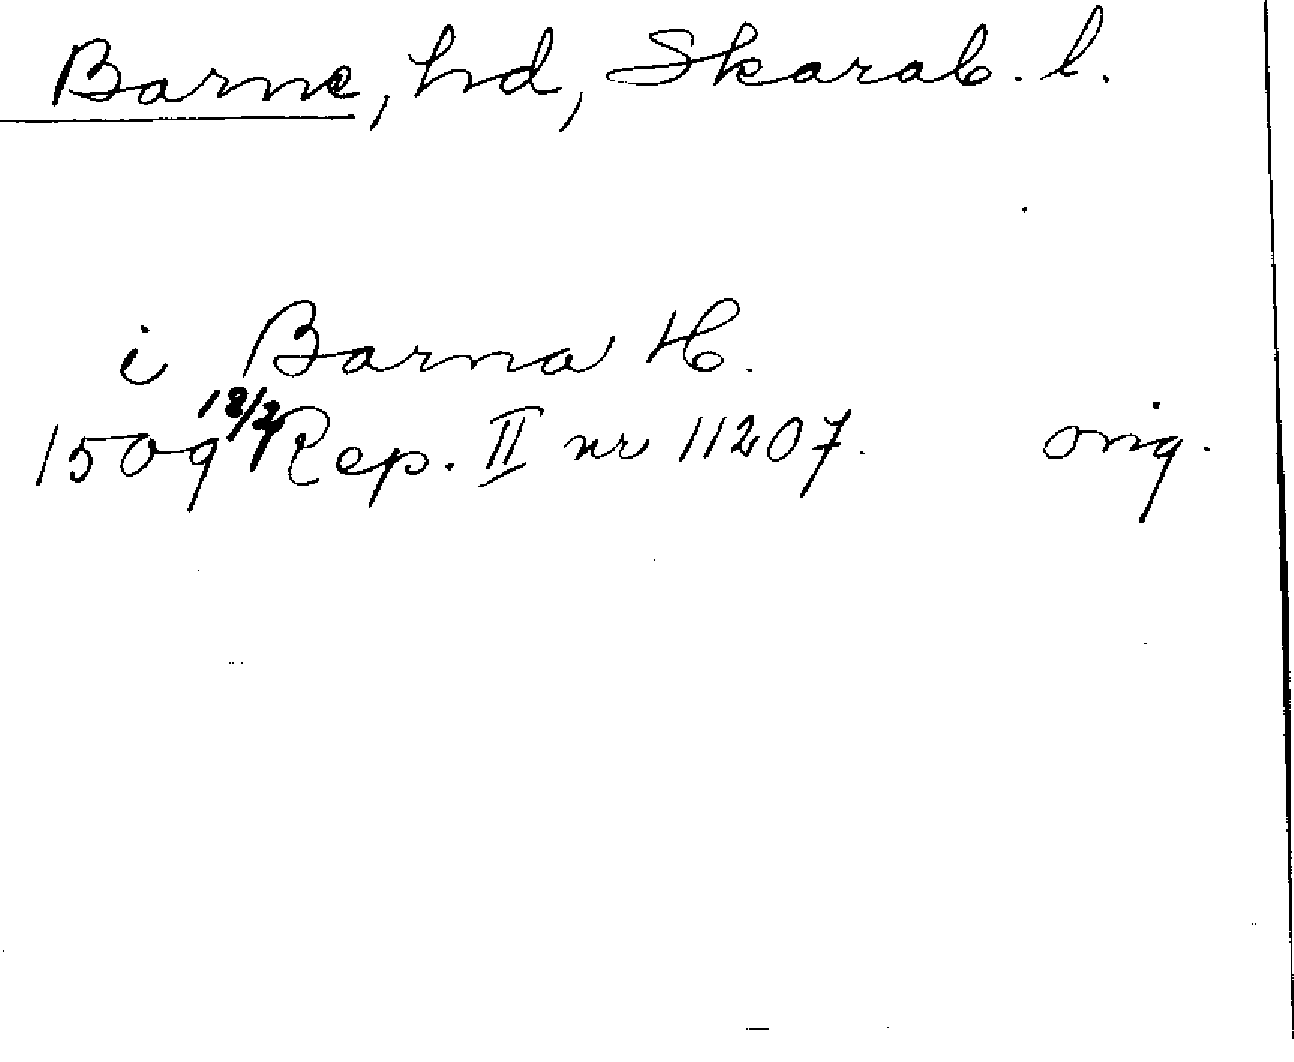 Barne, hd, Skarab. l.
i Barna H.
1509 12/7 Rep. II nr 11207. orig.